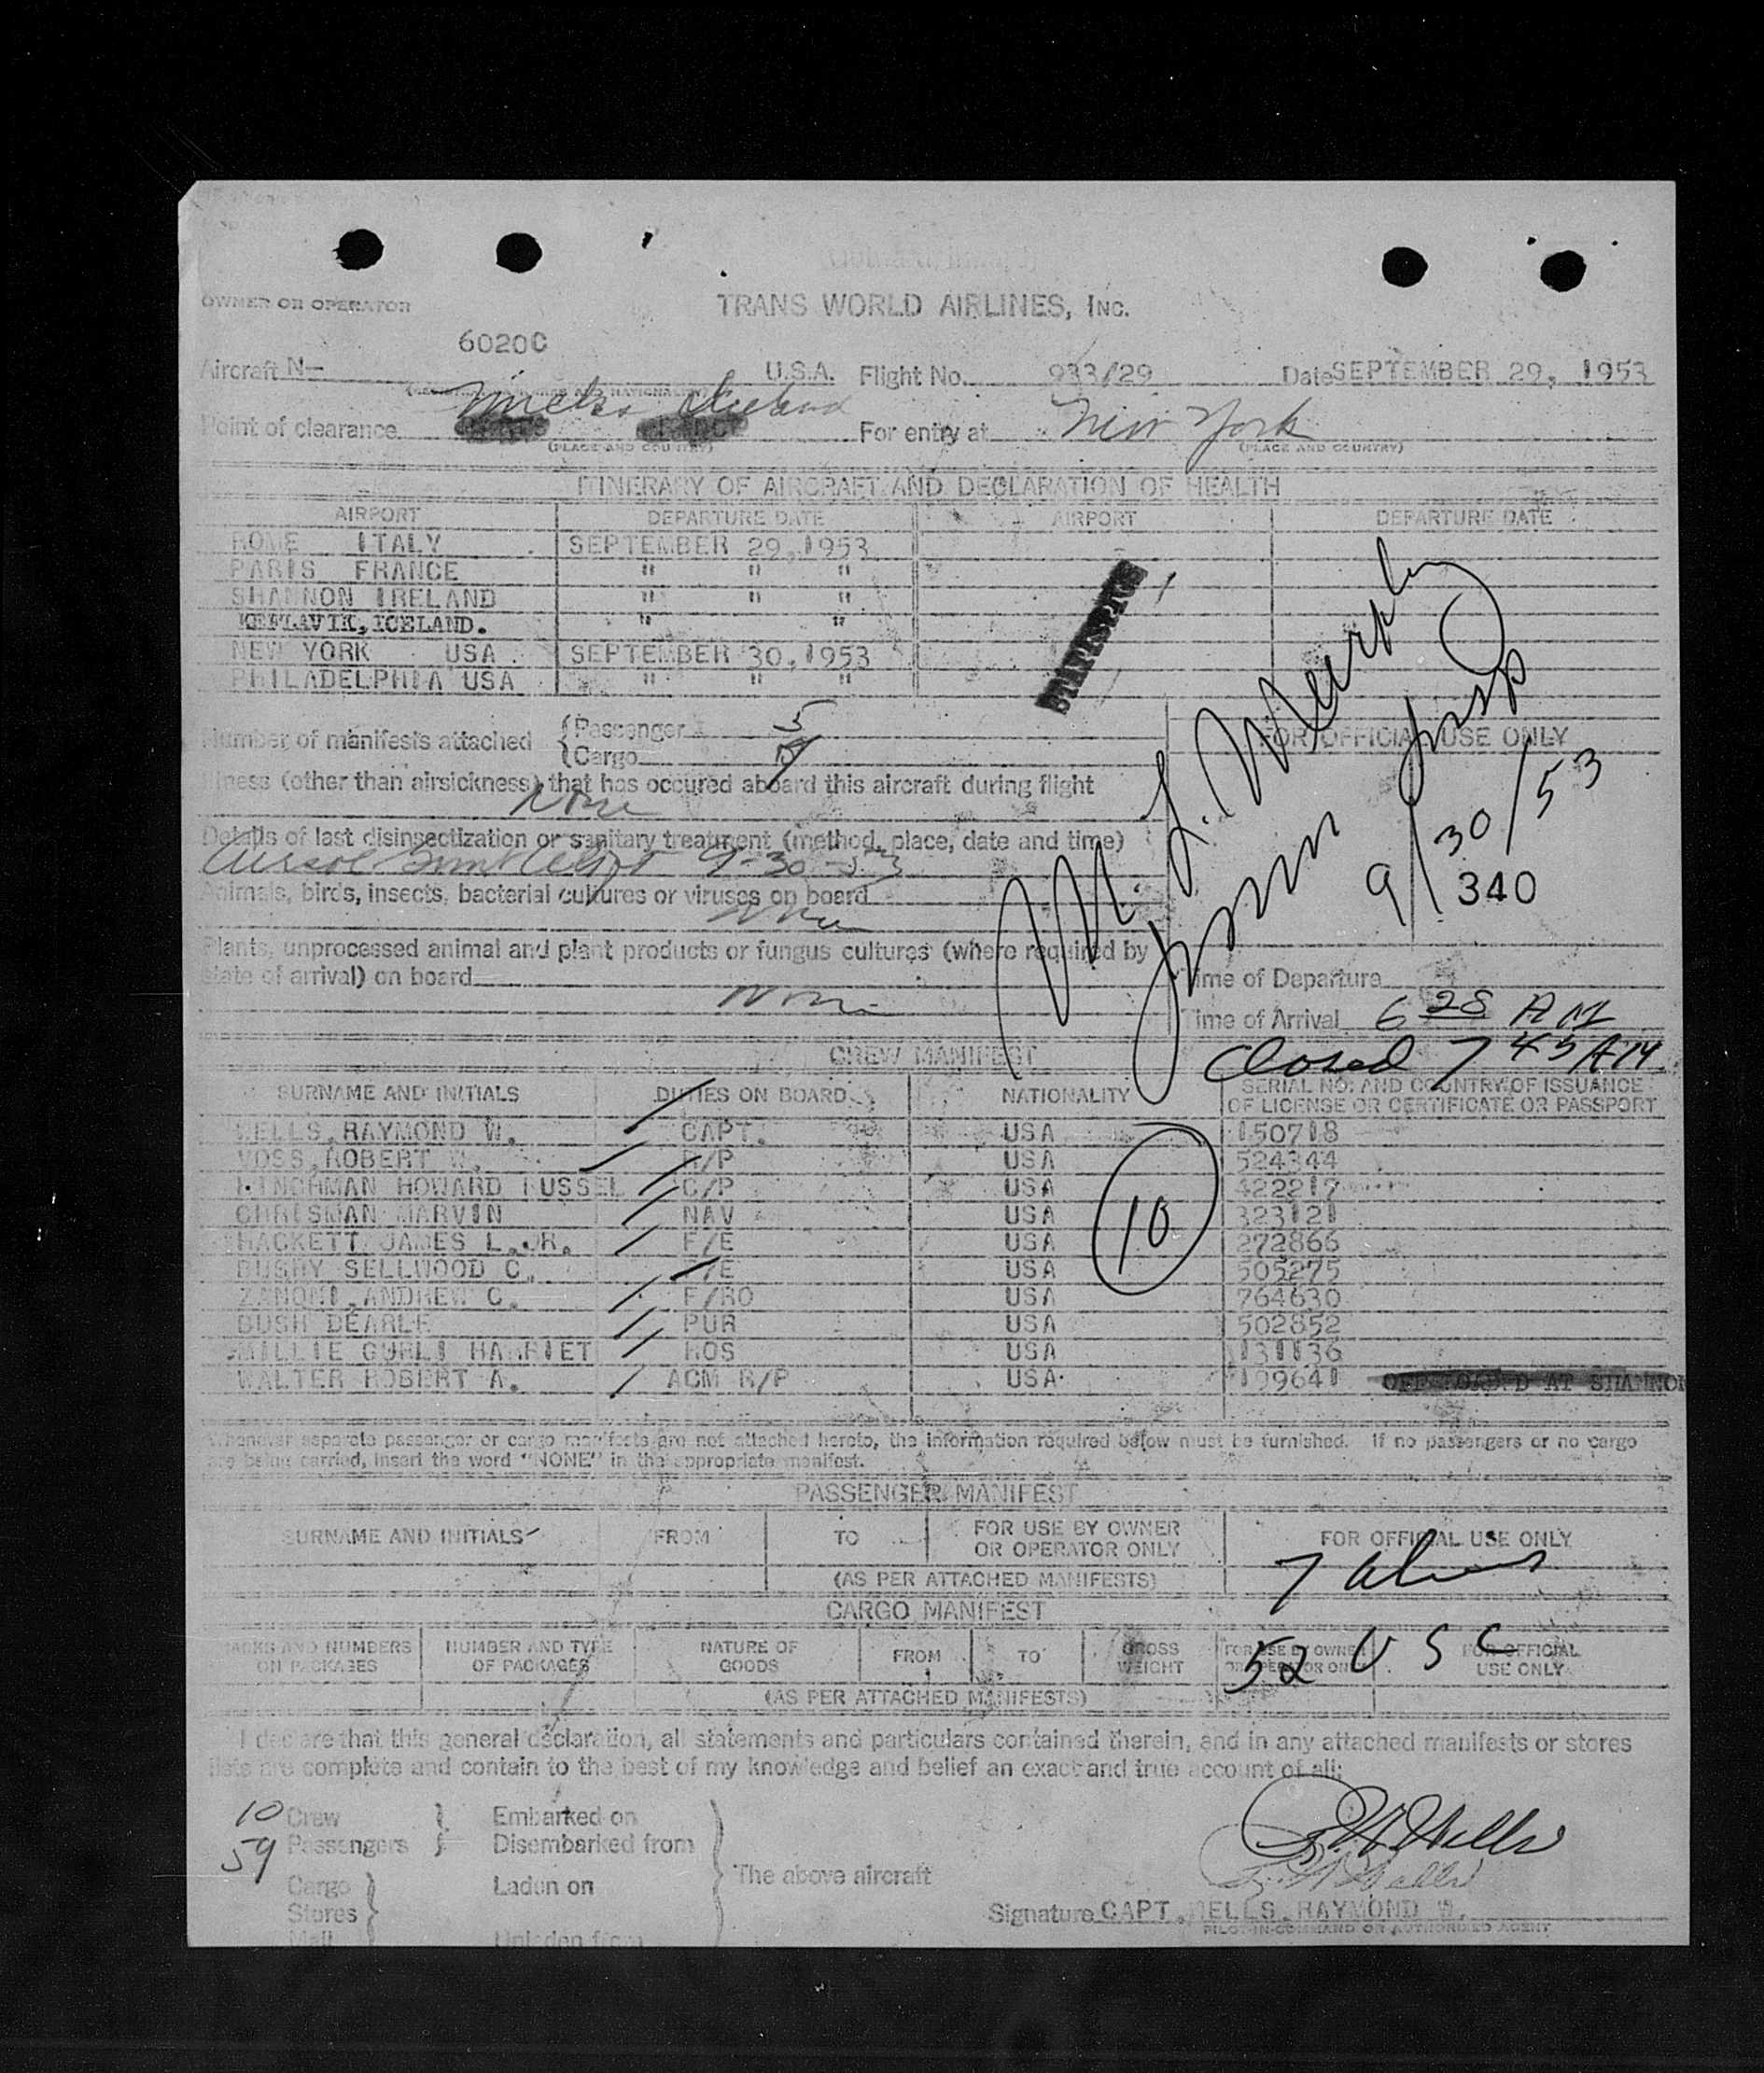 OWNER OR OPERATOR TRANS WORLD AIRLINES, INC.
6020C
Aircraft N- U.S.A. Flight No. 933/29 Date SEPTEMBER 29, 1953
Point of clearance For entry at New York
(PLACE AND COUNTRY) (PLACE AND COUNTRY)
ITINERARY OF AIRCRAFT AND DECLARATION OF HEALTH
AIRPORT DEPARTURE DATE AIRPORT DEPARTURE DATE
ROME ITALY SEPTEMBER 29, 1953
PARIS FRANCE " " "
SHANNON IRELAND " " "
KEFLAVIK, ICELAND. " "
NEW YORK USA SEPTEMBER 30, 1953
PHILADELPHIA USA " " "
Number of manifests attached { Passenger 5
{ Cargo
FOR OFFICIAL USE ONLY
M. L. Murphy
Imm Insp
9/30/53
340
Illness (other than airsickness) that has occured aboard this aircraft during flight
None
Details of last disinsectization or sanitary treatment (method, place, date and time)
9-30-53
Animals, birds, insects, bacterial cultures or viruses on board
None
Plants, unprocessed animal and plant products or fungus cultures (where required by
State of arrival) on board
None
Time of Departure
Time of Arrival 6 28 AM
Closed 7 45 AM
CREW MANIFEST
SURNAME AND INITIALS DUTIES ON BOARD NATIONALITY SERIAL NO. AND COUNTRY OF ISSUANCE
OF LICENSE OR CERTIFICATE OR PASSPORT
WELLS, RAYMOND W. CAPT. USA 150718
VOSS, ROBERT W. R/P USA 524344
HINCHMAN HOWARD RUSSEL C/P USA 422217
CHRISMAN MARVIN NAV USA 323121
HACKETT JAMES L. JR. F/E USA 272866
BUSHY SELLWOOD C. F/E USA 505275
ZANONI, ANDREW C. F/RO USA 764630
BUSH DEARLE PUR USA 502852
SMILLIE GURLI HARRIET HOS USA 131136
WALTER ROBERT A. ACM R/P USA 199641 OFF LOADED AT SHANNON
10
Whenever separate passenger or cargo manifests are not attached hereto, the information required below must be furnished. If no passengers or no cargo
are being carried, insert the word "NONE" in the appropriate manifest.
PASSENGER MANIFEST
SURNAME AND INITIALS FROM TO FOR USE BY OWNER
OR OPERATOR ONLY FOR OFFICIAL USE ONLY
(AS PER ATTACHED MANIFESTS)
7 aliens
CARGO MANIFEST
MARKS AND NUMBERS
ON PACKAGES NUMBER AND TYPE
OF PACKAGES NATURE OF
GOODS FROM TO GROSS
WEIGHT FOR USE BY OWNER
OR OPERATOR ONLY FOR OFFICIAL
USE ONLY
52 U S C
(AS PER ATTACHED MANIFESTS)
I declare that this general declaration, all statements and particulars contained therein, and in any attached manifests or stores
lists are complete and contain to the best of my knowledge and belief an exact and true account of all:
10 Crew } Embarked on
59 Passengers } Disembarked from
The above aircraft
Cargo } Laden on
Stores }
Mail Unladen from
R W Wells
R W Wells
Signature CAPT. WELLS, RAYMOND W.
PILOT-IN-COMMAND OR AUTHORIZED AGENT